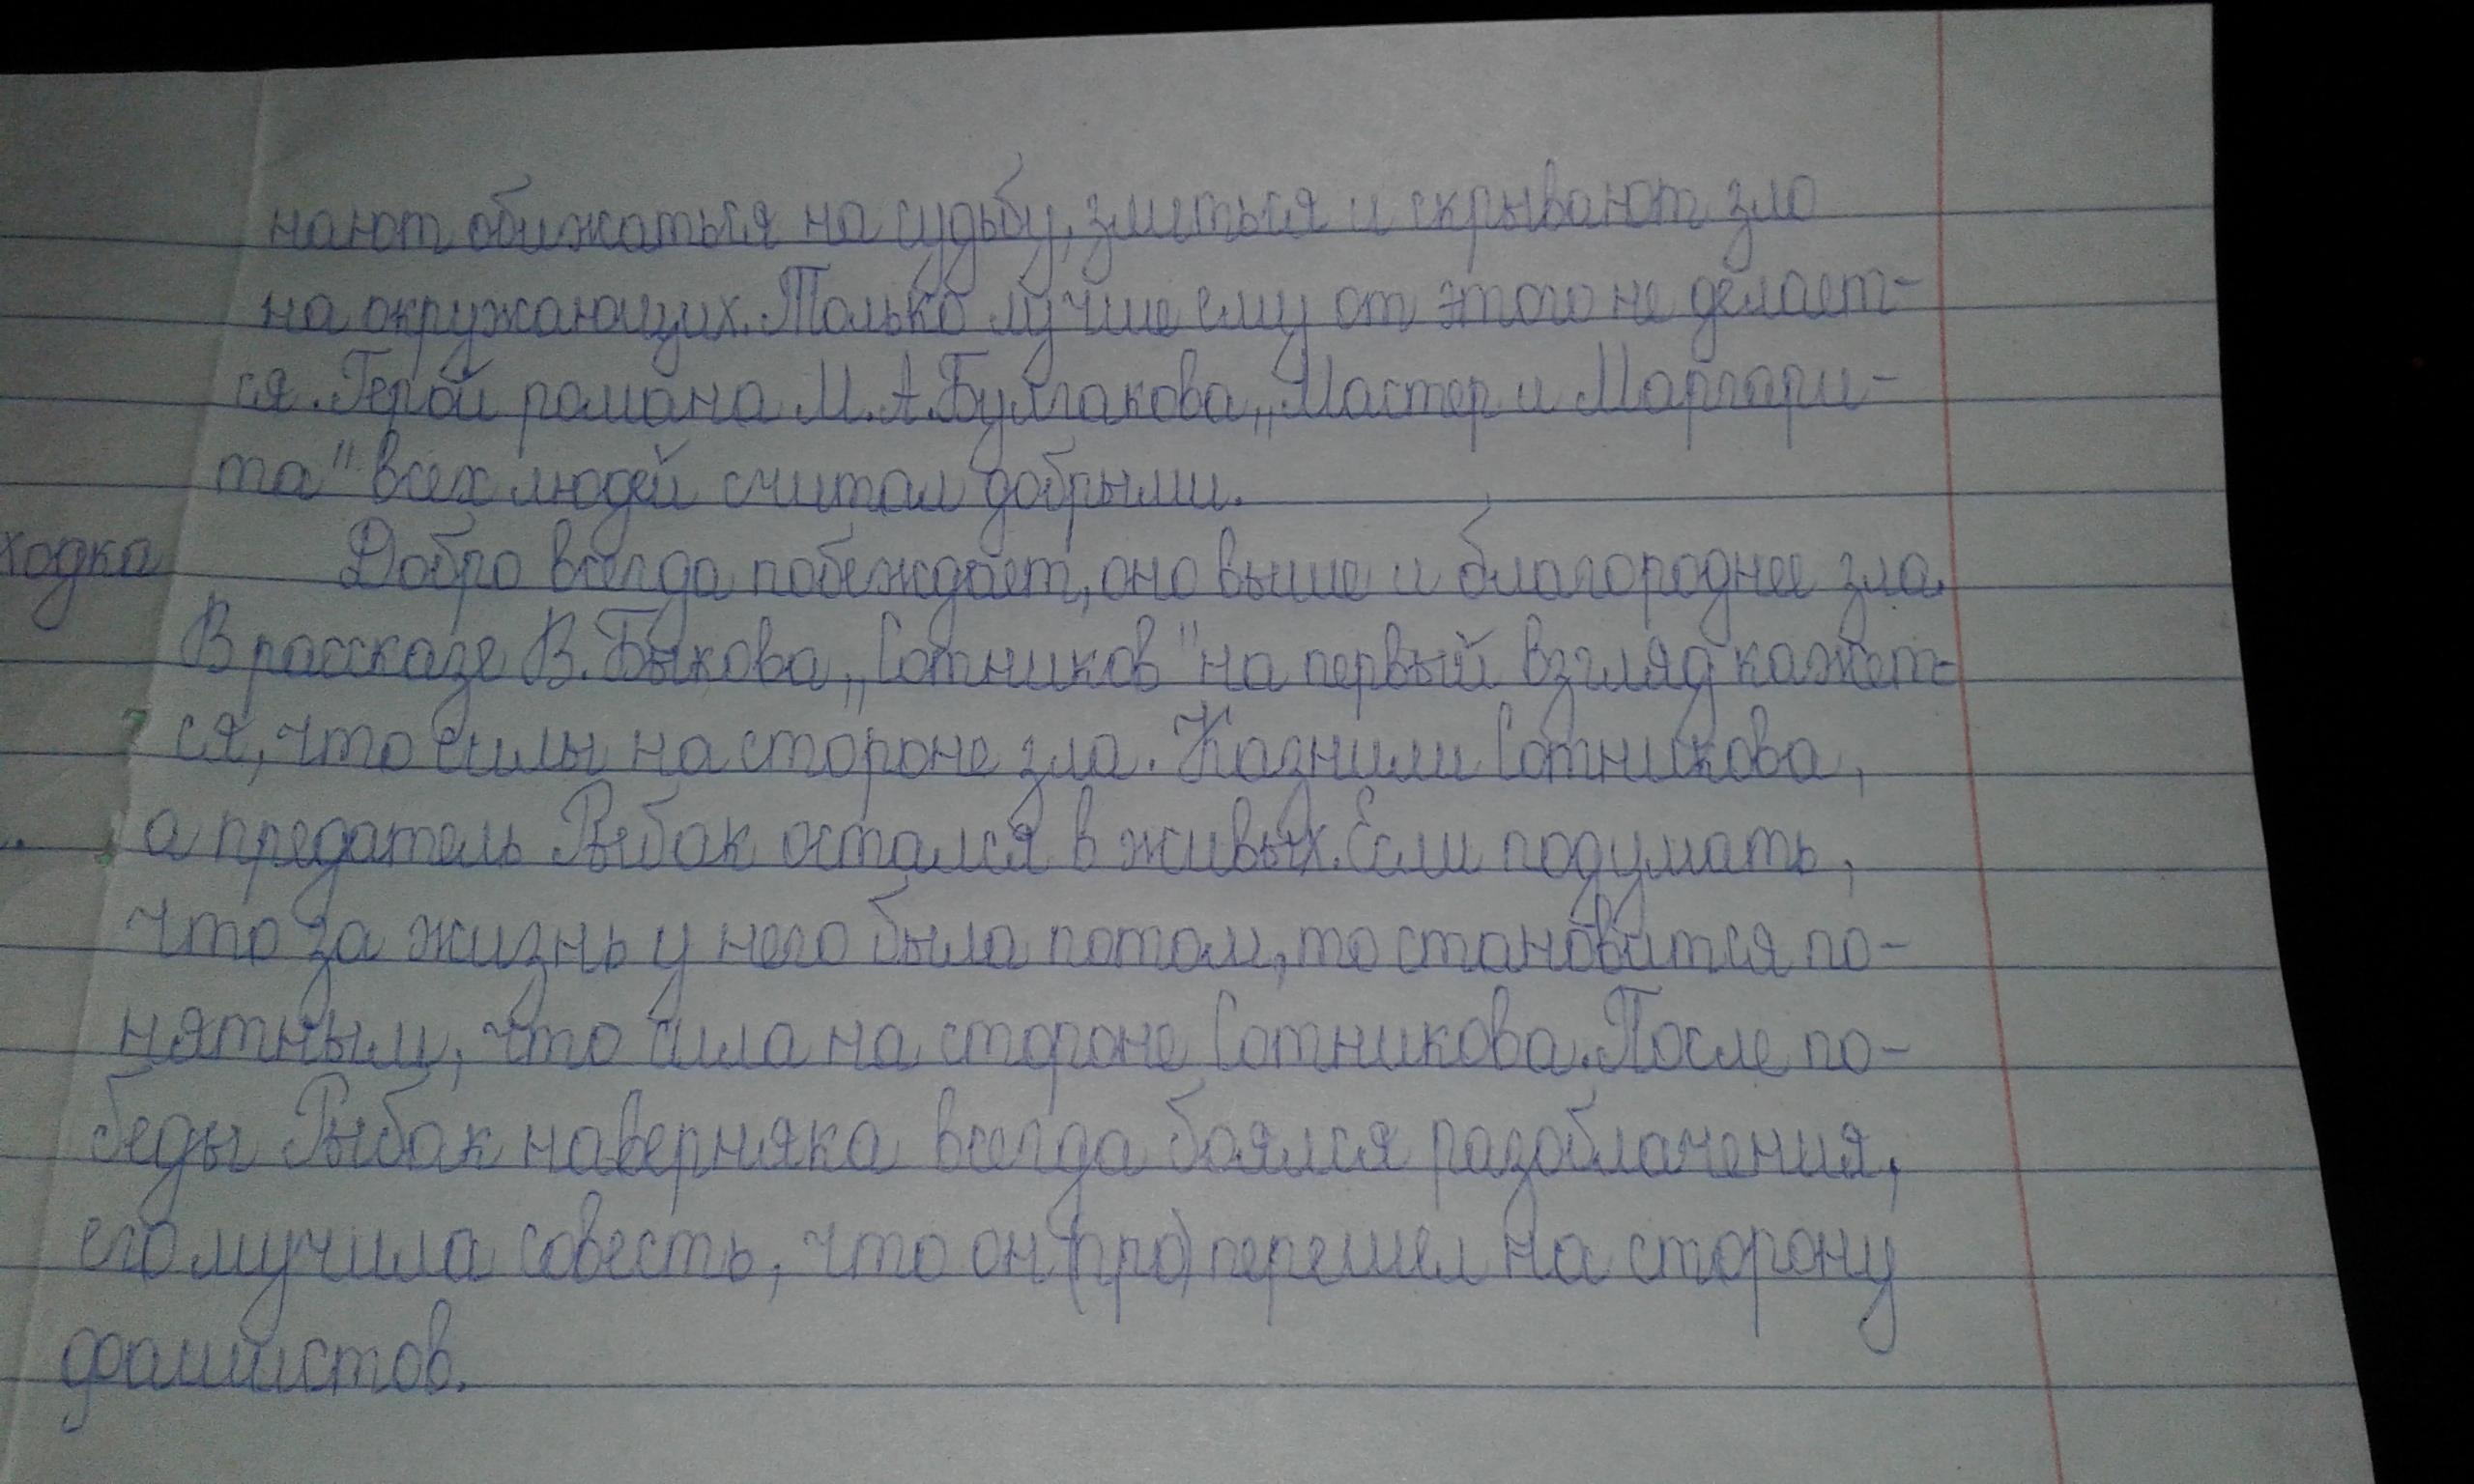 нают обижаться на судьбу, злиться и скрывают зло
на окружающих. Только лучше ему от этого не делает-
ся. Герой романа М.А.Булгакова „Мастер и Маргари-
та" всех людей считал добрыми.
ходка
Добро всегда побеждает, оно выше и благороднее зла.
В рассказе В. Быкова „Сотников" на первый взгляд кажет-
ся, что силы на стороне зла. Казнили Сотникова,
а предатель Рыбак остался в живых. Если подумать,
что за жизнь у него была потом, то становится по-
нятным, что сила на стороне Сотникова. После по-
беды Рыбак наверняка всегда боялся разоблачения,
его мучила совесть, что он (про) перешел на сторону
фашистов.